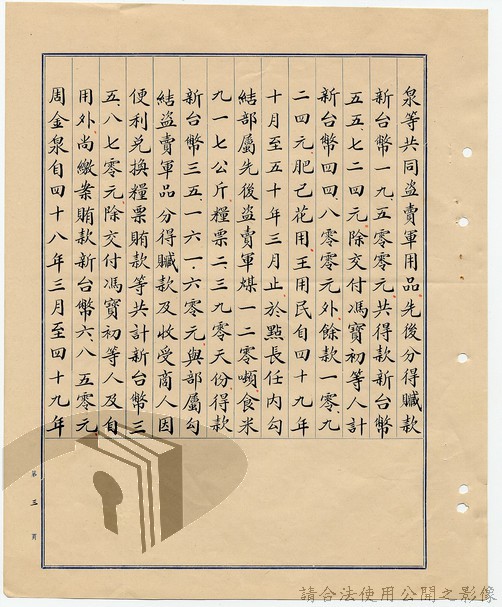 泉等共同盜賣軍用品先後分得贓款
新台幣一九五〇〇零元共得款新台幣
五五.七二四元除交付馮寶初等人計
新台幣四四.八〇〇零元外餘款一零九
二四元肥己花用王用民自四十九年
十月至五十年三月止於點長任内勾
結部屬先後盜賣軍煤一二零噸食米
九一七公斤糧票二三九零天份得款
新台幣三五.一六一.六零元與部屬勾
結盜賣軍品分得贓款及收受商人因
便利兑換糧票賄款等共計新台幣三
五.八七零元除交付馮寶初等人及自
用外尚繳案賄款新台幣六.八五零元
周金泉自四十八年三月至四十九年
第三頁
請合法使用公開之影像